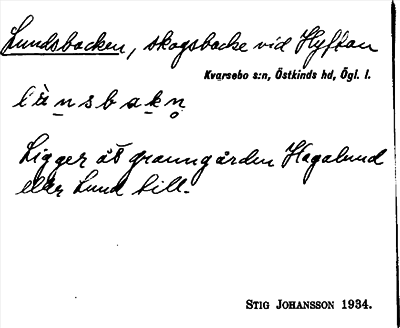 Lundsbacken, skogsbacke vid Hyftan
Kvarsebo s:n, Östkinds hd, Ögl. l.
Ligger åt granngården Hagalund
eller Lund till.
STIG JOHANSSON 1934.